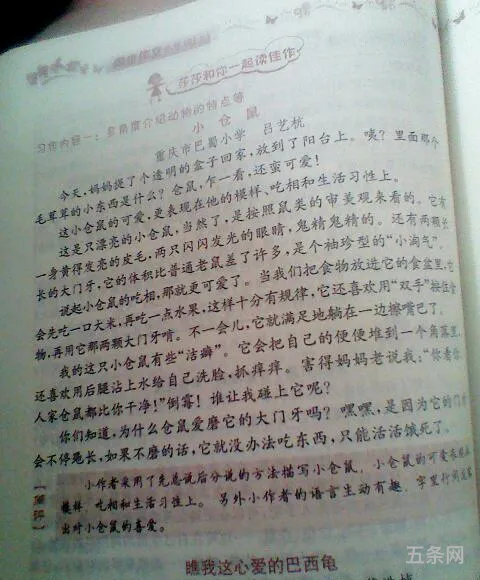 莎莎和你一起读佳作
习作内容一：多角度介绍动物的特点等
小仓鼠
重庆市巴蜀小学 吕艺杭
今天，妈妈提了个透明的盒子回家，放到了阳台上。咦？里面那个
毛茸茸的小东西是什么？仓鼠，乍一看，还蛮可爱！
这小仓鼠的可爱，更表现在他的模样、吃相和生活习性上。
这是只漂亮的小仓鼠，当然了，是按照鼠类的审美观来看的。它有
一身黄得发亮的皮毛，两只闪闪发光的眼睛，鬼精鬼精的。还有两颗长
长的大门牙，它的体积比普通老鼠差了许多，是个袖珍型的“小淘气”。
说起小仓鼠的吃相，那就更可爱了。当我们把食物放进它的食盆里，它
会先吃一口大米，再吃一点水果，这样十分有规律，它还喜欢用“双手”按住食
物，再用它那两颗大门牙啃。不一会儿，它就满足地躺在一边擦嘴巴了。
我的这只小仓鼠有些“洁癖”。它会把自己的便便堆到一个角落里，
还喜欢用后腿沾上水给自己洗脸，抓痒痒。害得妈妈老说我：“你看你，
人家仓鼠都比你干净！”倒霉！谁让我碰上它呢？
你们知道，为什么仓鼠爱磨它的大门牙吗？嘿嘿，是因为它的门牙
会不停地长，如果不磨的话，它就没办法吃东西，只能活活饿死了。
小作者采用了先总说后分说的方法描写小仓鼠，小仓鼠的可爱表现在
模样、吃相和生活习性上。另外小作者的语言生动有趣，字里行间流露
出对小仓鼠的喜爱。
瞧我这心爱的巴西龟
五条网